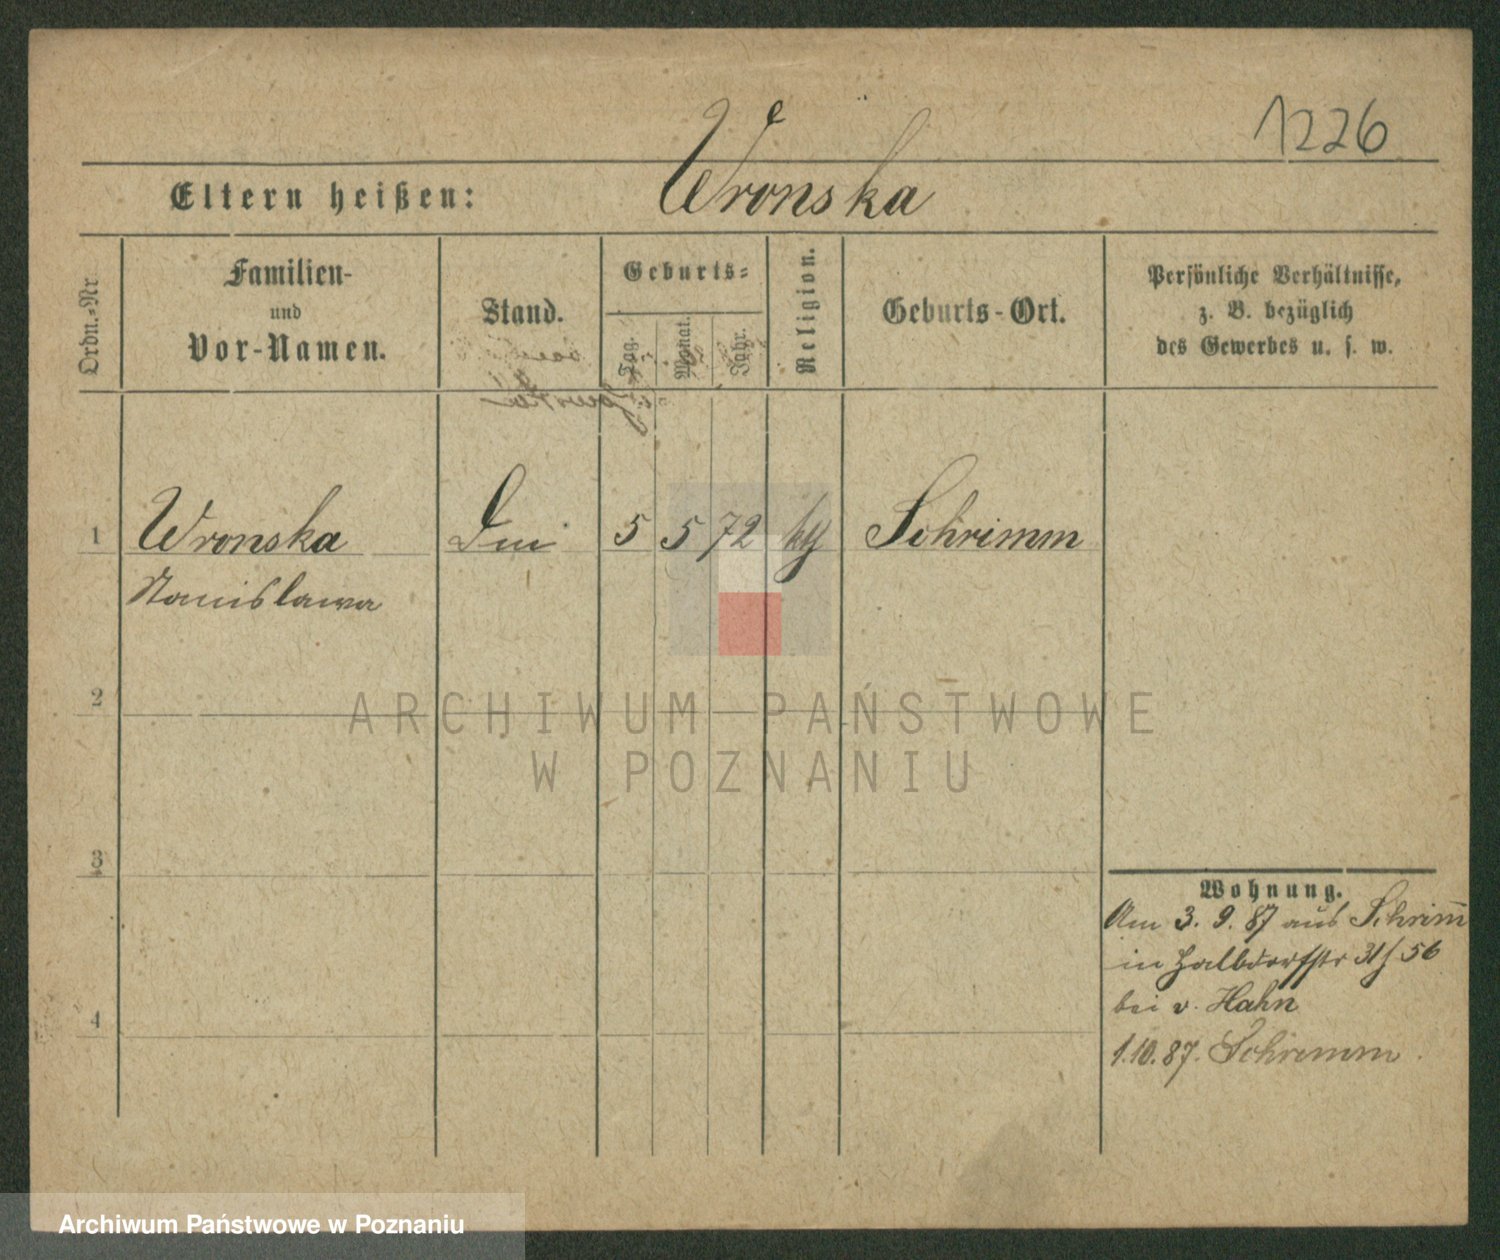 1226
Eltern heißen: Wronska
Ordn.-Nr
Familien-
und
Vor-Namen.
Stand.
Geburts-
Tag.
Monat.
Jahr.
Religion.
Geburts-Ort.
Persönliche Verhältnisse,
z. B. bezüglich
des Gewerbes u. s. w.
1 Wronska 5 5 72 Schrimm
Stanislawa
2
3
4
Wohnung.
Am 3. 9. 87 aus Schrim̅
in Halbdorfstr 31/56
bei v. Hahn
1.10.87. Schrimm.
ARCHIWUM PAŃSTWOWE
W POZNANIU
Archiwum Państwowe w Poznaniu